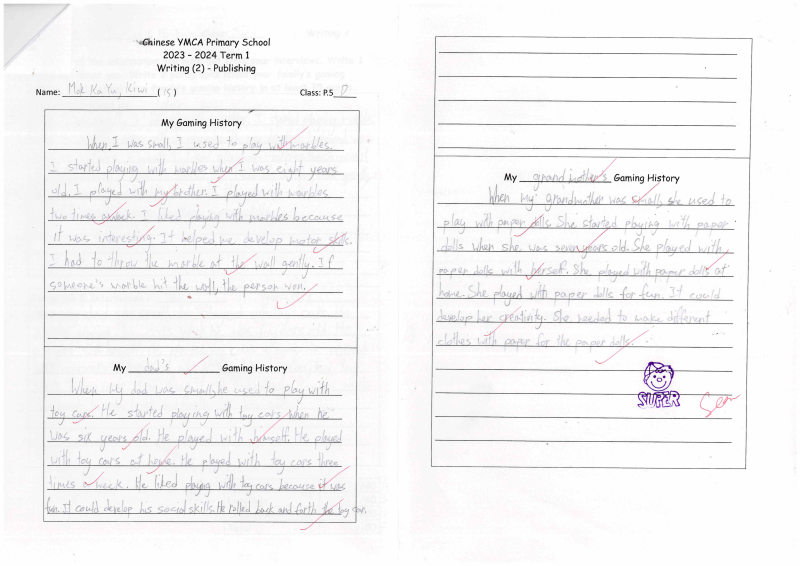 Chinese YMCA Primary School
2023 – 2024 Term 1
Writing (2) - Publishing
Name: Mok Ka Yu, Kiwi (15) Class: P.5 D
My Gaming History
When I was small, I used to play with marbles.
I started playing with marbles when I was eight years
old. I played with my brother. I played with marbles
two times a week. I liked playing with marbles because
it was interesting. It helped me develop motor skills.
I had to throw the marble at the wall gently. If
someone's marble hit the wall, the person won.
My dad's Gaming History
When my dad was small, he used to play with
toy cars. He started playing with toy cars when he
was six years old. He played with himself. He played
with toy cars at home. He played with toy cars three
times a week. He liked playing with toy cars because it was
fun. It could develop his social skills. He rolled back and forth the toy car.
My grandmother's Gaming History
When my grandmother was small, she used to
play with paper dolls. She started playing with paper
dolls when she was seven years old. She played with
paper dolls with herself. She played with paper dolls at
home. She played with paper dolls for fun. It could
develop her creativity. She needed to make different
clothes with paper for the paper dolls.
SUPER